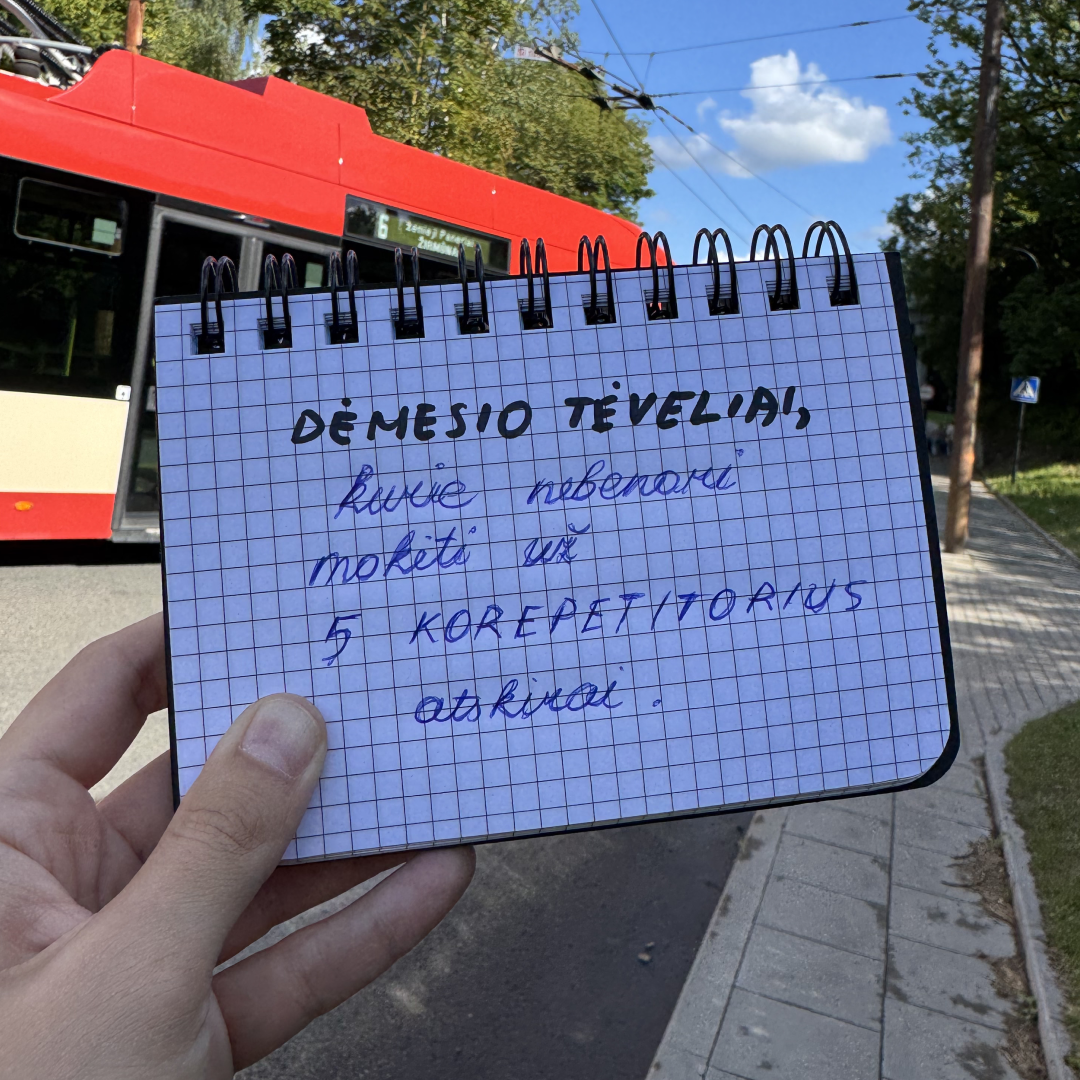 6 Žemieji Paneriai
ŽIRMŪNAI
DĖMESIO TĖVELIAI,
kurie nebenori
mokėti už
5 KOREPETITORIUS
atskirai.